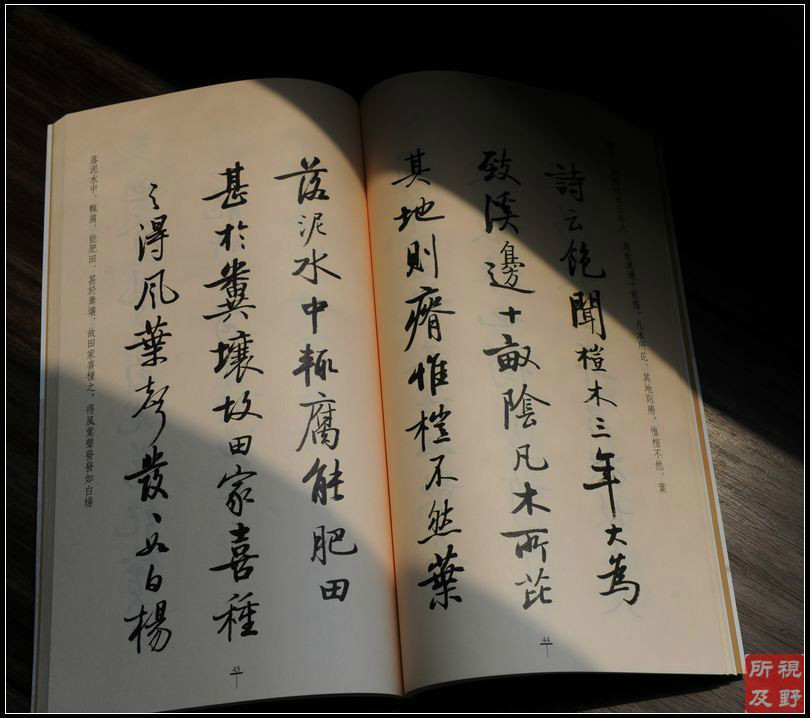 詩云飽聞榿木三年大為
致溪邊十畝陰凡木所芘
其地則瘠惟榿不然葉
木三年大，爲致溪邊十畝陰。凡木所芘，其地則瘠，惟榿不然，葉
44
落泥水中輒腐能肥田
甚於糞壤故田家喜種
之得風葉聲發〻如白楊
落泥水中，輒腐，能肥田，甚於糞壤，故田家喜種之，得風葉聲發發如白楊
45
視野
所及